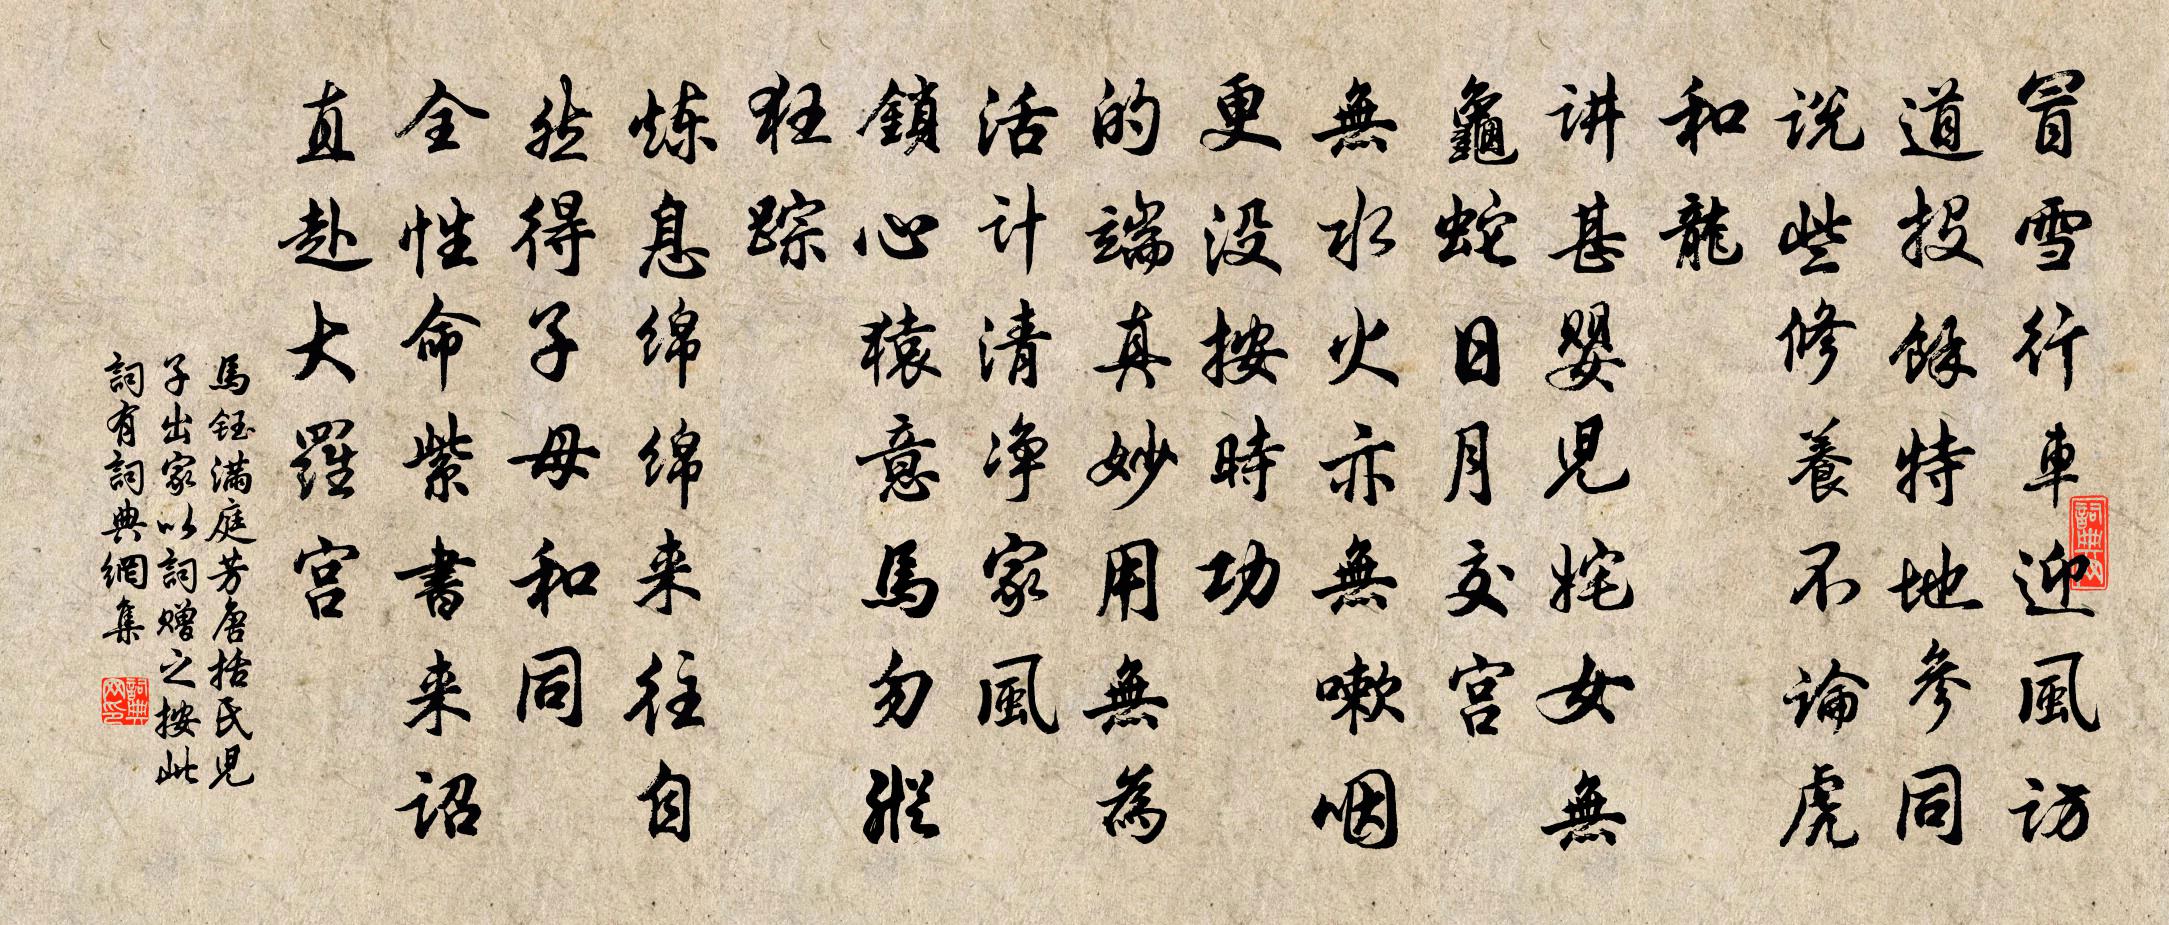 冒雪行車迎風訪
道投餘特地參同
说些修養不論虎
和龍
讲甚嬰兒姹女無
龜蛇日月交宮
無水火亦無嗽咽
更没按時功
的端真妙用無為
活计清净家風
鎖心猿意馬勿縱
狂踪
炼息绵绵来往自
然得子母和同
全性命紫書来诏
直赴大羅宮
馬钰满庭芳唐括氏兒
子出家以詞赠之按此
詞有詞典網集
詞典网
詞典网印